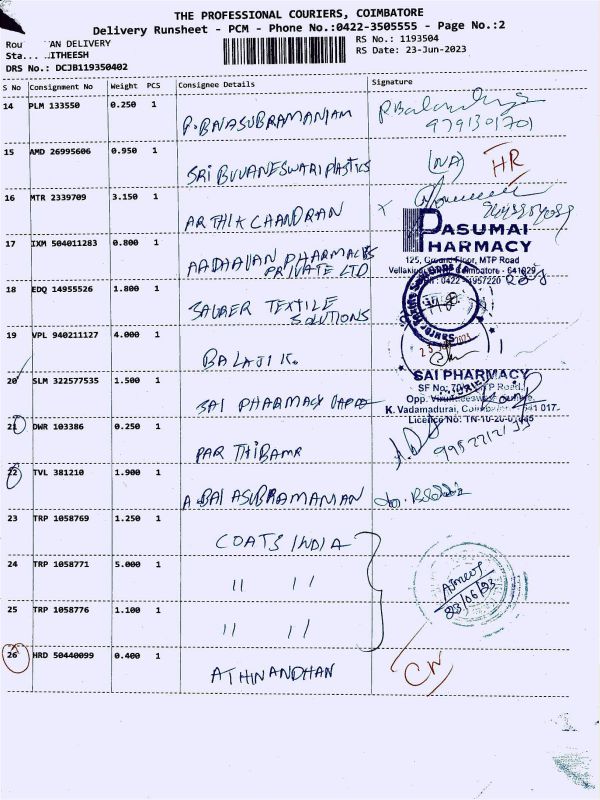 THE PROFESSIONAL COURIERS, COIMBATORE
Delivery Runsheet - PCM - Phone No.:0422-3505555 - Page No.:2
Rou AN DELIVERY
RS No.: 1193504
Sta... ITHEESH
RS Date: 23-Jun-2023
DRS No.: DCJB119350402
S No Consignment No Weight PCS Consignee Details Signature
14 PLM 133550 0.250 1 P. BNASUBRAMANIAM
9791301701
15 AMD 26995606 0.950 1 SRI BUVANESWARI PLASTICS (NA) HR
16 MTR 2339709 3.150 1 ARTHIK CHANDRAN X
PASUMAI
PHARMACY
17 IXM 504011283 0.800 1 AADHAVAN PHARMACIES
PRIVATE LTD
125, Ground Floor, MTP Road
Coimbatore - 641029
0422 - 4957220
18 EDQ 14955526 1.800 1 SAURER TEXTILE
SOLUTIONS
19 VPL 940211127 4.000 1 BALAJI K.
20 SLM 322577535 1.500 1 SAI PHARMACY
SAI PHARMACY
SF No: 70 Road,
Opp.
K. Vadamadurai, 641 017.
Licence No: TN-10-20-
21 DWR 103386 0.250 1 PARTHIBAMR
22 TVL 381210 1.900 1 A BALASUBRAMANIAN
23 TRP 1058769 1.250 1 COATS INDIA
24 TRP 1058771 5.000 1 11 11
23/06/23
25 TRP 1058776 1.100 1 11 11
26 HRD 50440099 0.400 1 ATHINANDHAN